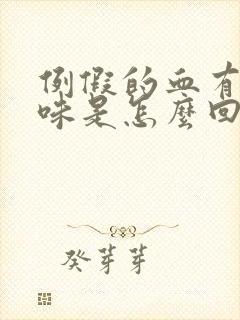 例假的血有
味是怎麼回
癸芽芽